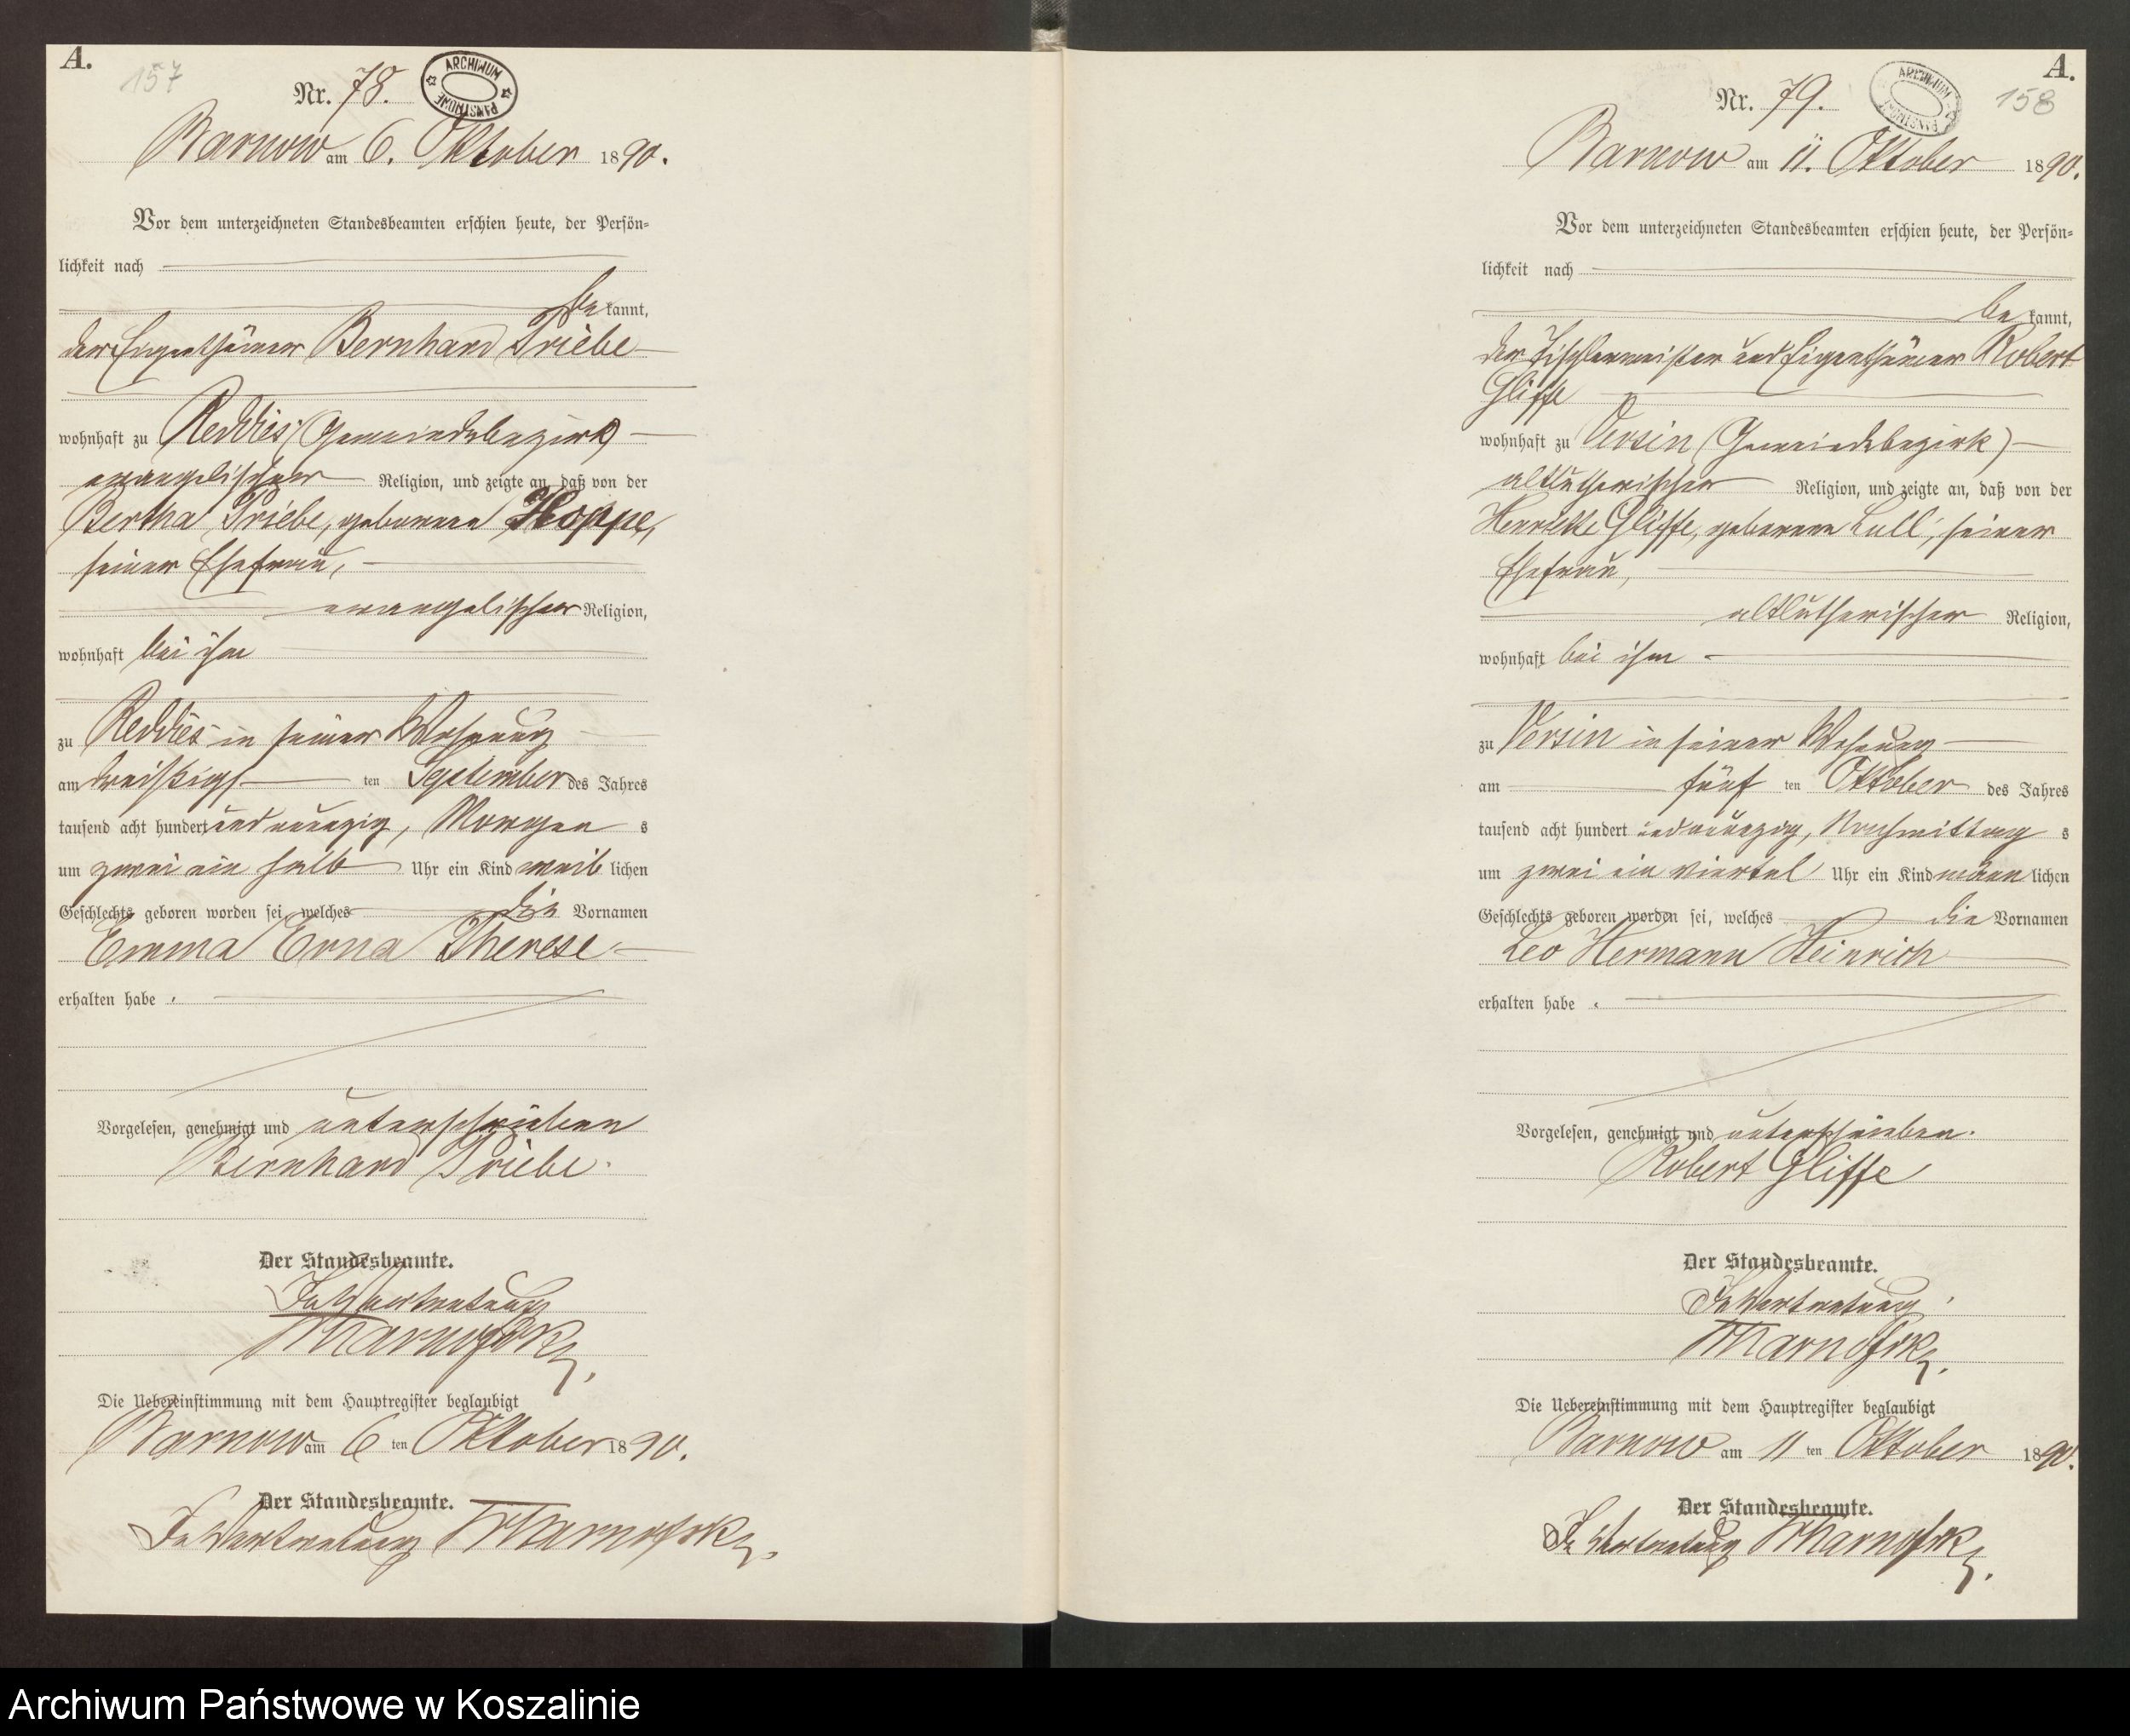 A.
157
Nr. 78.
ARCHIWUM PAŃSTWOWE
Barnow am 6. Oktober 1890.
Vor dem unterzeichneten Standesbeamten erschien heute, der Persön=
lichkeit nach
be kannt,
der Eigenthümer Bernhard Priebe
wohnhaft zu Reddies (Gemeindebezirk)
evangelischer Religion, und zeigte an, daß von der
Bertha Priebe, geborene Hoppe,
seiner Ehefrau,
evangelischer Religion,
wohnhaft bei ihm
zu Reddies in seiner Wohnung
am dreißigs ten September des Jahres
tausend acht hundert und neunzig, Morgen s
um zwei ein halb Uhr ein Kind weib lichen
Geschlechts geboren worden sei, welches die Vornamen
Emma Erna Therese
erhalten habe.
Vorgelesen, genehmigt und unterschrieben
Bernhard Priebe.
Der Standesbeamte.
In Vertretung
Die Uebereinstimmung mit dem Hauptregister beglaubigt
Barnow am 6 ten Oktober 1890.
Der Standesbeamte.
In Vertretung
A.
158
Nr. 79.
ARCHIWUM PAŃSTWOWE
Barnow am 11. Oktober 1890.
Vor dem unterzeichneten Standesbeamten erschien heute, der Persön=
lichkeit nach
be kannt,
der Tischlermeister und Eigenthümer Robert
Gliffe
wohnhaft zu Versin (Gemeindebezirk)
altlutherischer Religion, und zeigte an, daß von der
Henriette Gliffe, geborene Lull, seiner
Ehefrau,
altlutherischer Religion,
wohnhaft bei ihm
zu Versin in seiner Wohnung
am fünf ten Oktober des Jahres
tausend acht hundert und neunzig, Nachmittag s
um zwei ein viertel Uhr ein Kind männ lichen
Geschlechts geboren worden sei, welches die Vornamen
Leo Hermann Heinrich
erhalten habe.
Vorgelesen, genehmigt und unterschrieben.
Robert Gliffe
Der Standesbeamte.
In Vertretung
Die Uebereinstimmung mit dem Hauptregister beglaubigt
Barnow am 11 ten Oktober 1890.
Der Standesbeamte.
In Vertretung
Archiwum Państwowe w Koszalinie